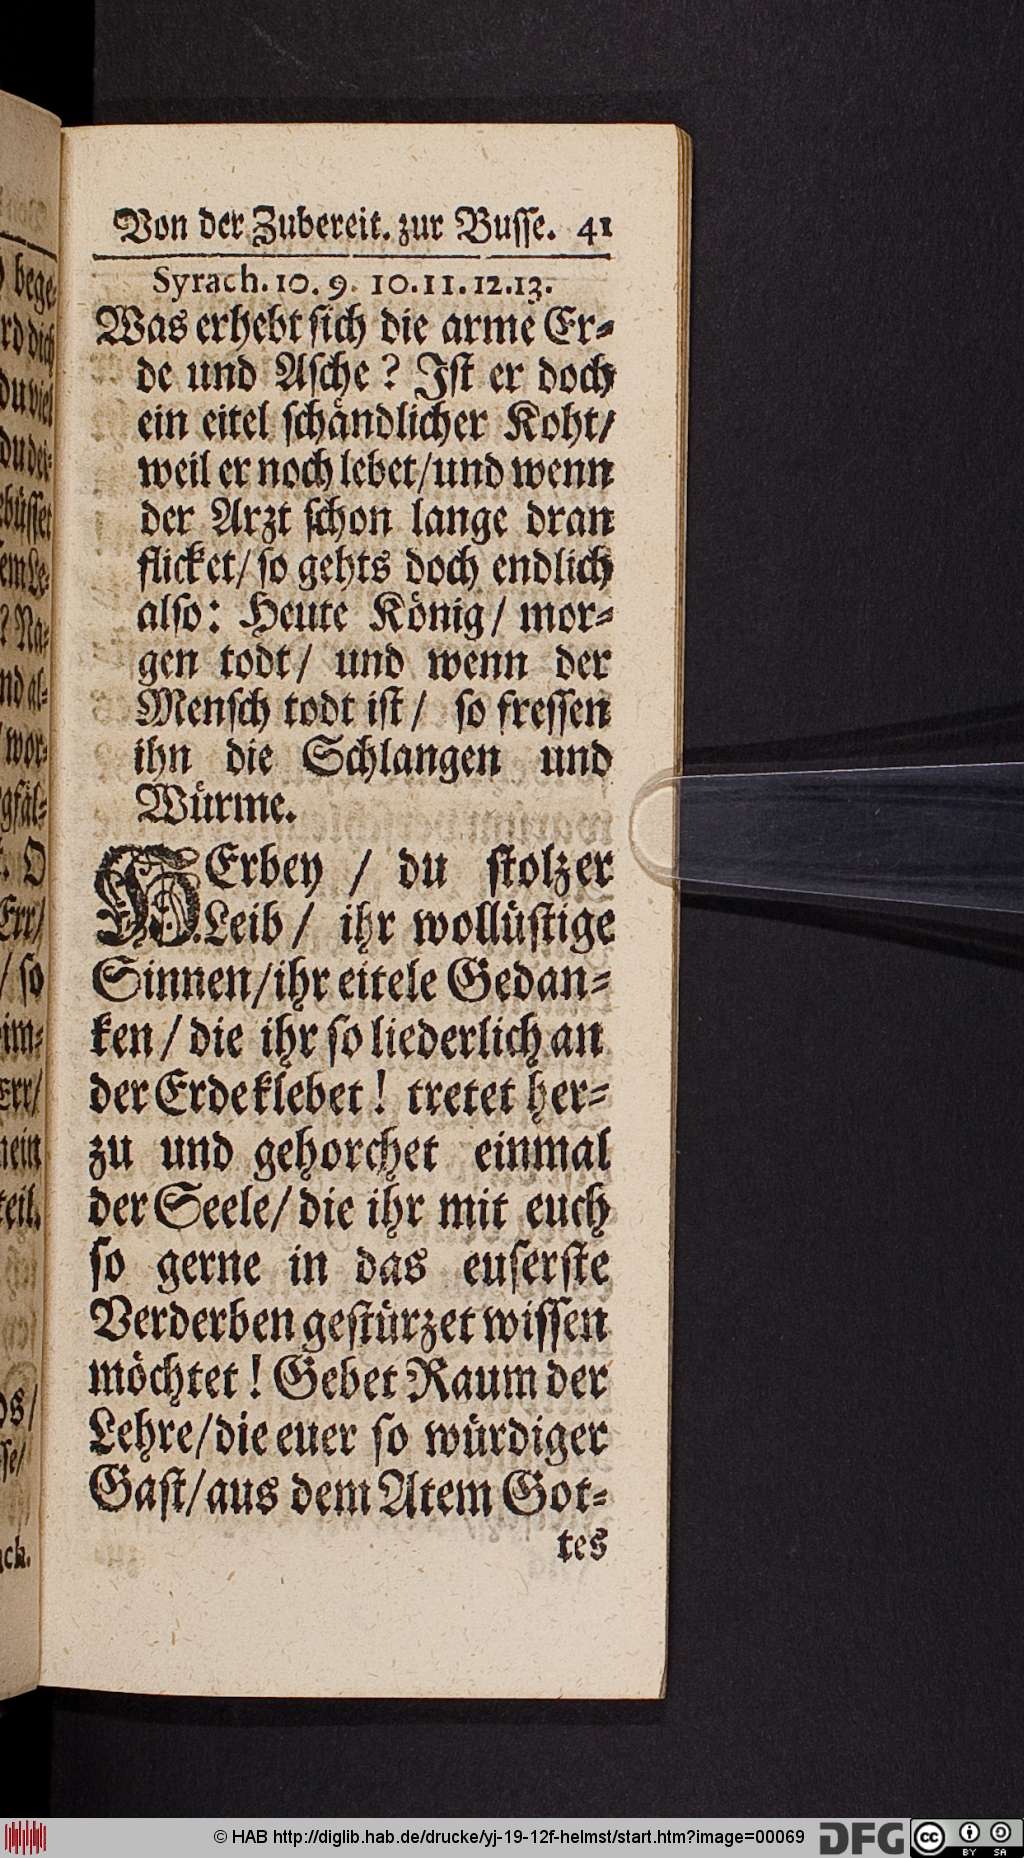 Von der Zubereit. zur Busse. 41
Syrach. 10. 9. 10. 11. 12. 13.
Was erhebt sich die arme Er-
de und Asche? Ist er doch
ein eitel schändlicher Koht/
weil er noch lebet/und wenn
der Arzt schon lange dran
flicket/ so gehts doch endlich
also: Heute König/ mor-
gen todt/ und wenn der
Mensch todt ist/ so fressen
ihn die Schlangen und
Würme.
HErbey / du stolzer
Leib/ ihr wollüstige
Sinnen/ihr eitele Gedan-
ken/die ihr so liederlich an
der Erde klebet! tretet her-
zu und gehorchet einmal
der Seele/die ihr mit euch
so gerne in das euserste
Verderben gestürzet wissen
möchtet! Gebet Raum der
Lehre/die euer so würdiger
Gast/aus dem Atem Got-
tes
© HAB http://diglib.hab.de/drucke/yj-19-12f-helmst/start.htm?image=00069
DFG
cc BY SA